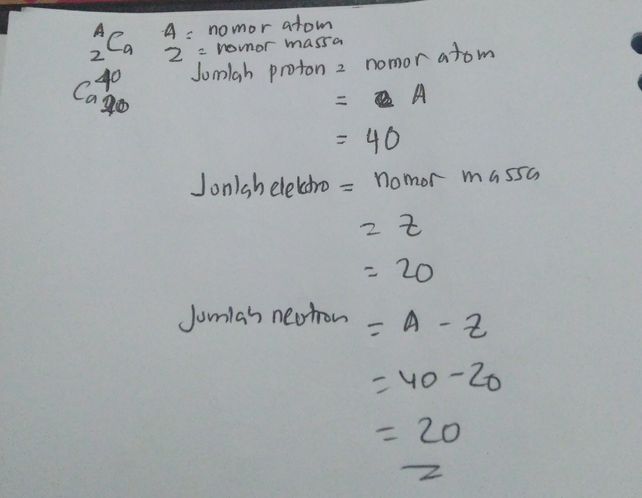 A Ca A = nomor atom
2 Z = nomor massa
40 Jumlah proton = nomor atom
Ca 20 = A
= 40
Jonlah elektro = nomor massa
= Z
= 20
Jumlah neutron = A - Z
= 40 - 20
= 20